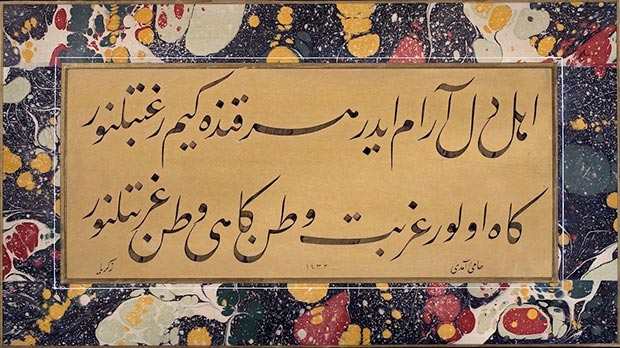 اهل دل آرام ايدر هر قنده كيم رغبتلنور
كاه اولور غربت وطن كاهى وطن غربتلنور
حامى آمدى
١٤٣٢
زكريا